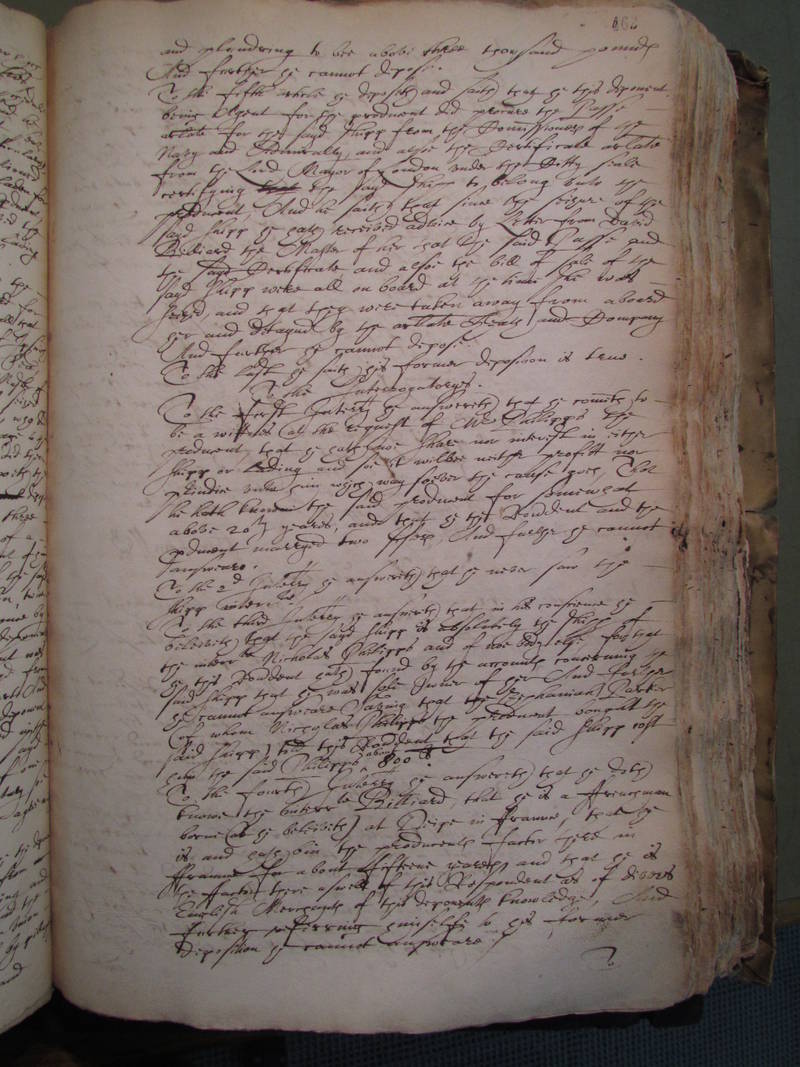 and plundring to bee above three thousand pounds
And further he cannot depose.
To the fifth article he deposeth and saith that he this deponent
being Agent for the producent did procure the Passe
arlate for the said shipp from the Commissioners of the
Navy and Admiralty, and alsoe the Certificate arlate
from the Lord Mayor of London under the Citty seale
certifying the said shipp to belong unto the
producent, And he saith that since the seizure of the
said shipp he hath received advise by Letter from David
Billiard the Master of her that the said Passe and
the said Certificate and alsoe the bill of sale of the
said shipp were all on board at the time she was
seized and that they were taken away from aboard
her and detayned by the arlate and Company
And further he cannot depose.
To the last he saith his former deposition is true.
To the Interrogatorys.
To the first Interry he answereth that he cometh to
be a witnesse at the request of Mr Phillipps the
producent, that he hath noe share nor interest in either
shipp or Lading and soe it wilbe neither profitt nor
under him which way soever the cause goes, That
he hath knowne the said producent for somewhat
above 20ty yeares, and that he this Rendent and the
producent marryed two sisters, And further he cannot
answeare.
To the 2d Interry he answereth that he never saw the
shipp interrate
To the third Interry he answereth that in his conscience he
beleiveth that the said shipp is absolutely the shipp of
the interrate Nicholas Phillipps and of noe body else, for that
he this Rendent hath found by the accompts concerning the
said shipp that he was sole Owner of her And further
he cannot answeare saving that Zephaniah
of whom Nicholas Phillipps the producent bought the
said shipp, this Rendent that the said shipp cost
him the said Phillipps about 800 li.
To the fourth Interry he answereth that he doth
knowe the interrate Billiard, that he is a ffrenchman
borne (as he beleiveth) at Deipe in ffrance, that he
is and hath bin the producents factor there in
ffrance for about fifteene yeares and that he is
the factor there aswell of this Respondent as of divers
English Merchants of this deponents knowledge, And
further referring himselfe to his former
deposition he cannot answeare
To